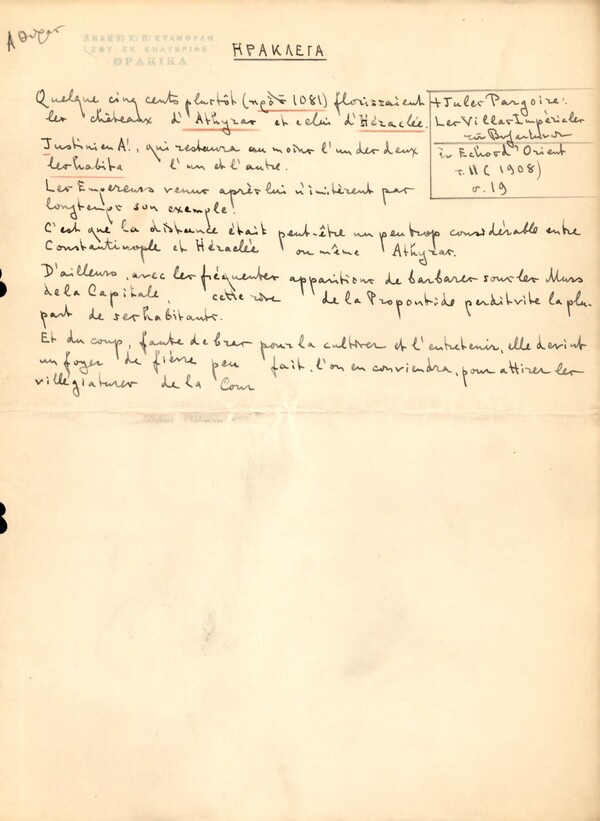 Αθύρας
ΤΟΥ ΕΚ ΣΗΛΥΒΡΙΑΣ
ΘΡΑΚΙΚΑ
ΗΡΑΚΛΕΙΑ
Quelque cinq cents plustôt (πρὸ τοῦ 1081) florissaient
les châteaux d' Athyras et celui d'Héraclée.
Justinien A!, qui restaura au moins l'un des deux
les habita l'un et l'autre.
Les Empereurs venus après lui n'imitèrent pas
longtemps son exemple.
C'est que la distance était peut-être un peu trop considérable entre
Constantinople et Héraclée ou même Athyras.
D'ailleurs, avec les fréquentes apparitions de barbares sous les Murs
de la Capitale, cette rive de la Propontide perdit vite la plu-
part de ses habitants.
Et du coup, faute de bras pour la cultiver et l'entretenir, elle devint
un foyer de fièvre peu fait, l'on en conviendra, pour attirer les
villégiatures de la Cour
+ Jules Pargoire:
Les Villas Impériales
τῶν Βυζαντινῶν
ἐν Echos d'Orient
τ. 11 (1908)
σ. 19